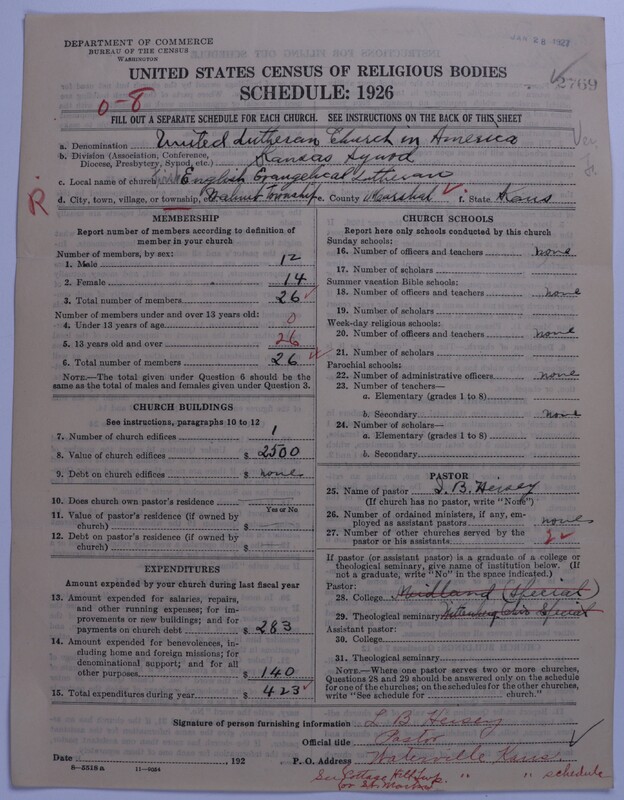 DEPARTMENT OF COMMERCE
BUREAU OF THE CENSUS
WASHINGTON
JAN 28 1927
UNITED STATES CENSUS OF RELIGIOUS BODIES
SCHEDULE: 1926
2769
0-8
FILL OUT A SEPARATE SCHEDULE FOR EACH CHURCH. SEE INSTRUCTIONS ON THE BACK OF THIS SHEET
a. Denomination United Lutheran Church in America
b. Division (Association, Conference, Diocese, Presbytery, Synod, etc.) Kansas Synod
c. Local name of church English Evangelical Lutheran
R.
d. City, town, village, or township, Township e. County Marshal f. State Kans
MEMBERSHIP
Report number of members according to definition of
member in your church
Number of members, by sex:
1. Male 12
2. Female 14
3. Total number of members 26
Number of members under and over 13 years old:
4. Under 13 years of age 0
5. 13 years old and over 26
6. Total number of members 26
NOTE.—The total given under Question 6 should be the
same as the total of males and females given under Question 3.
CHURCH BUILDINGS
See instructions, paragraphs 10 to 12
7. Number of church edifices 1
8. Value of church edifices $ 2500
9. Debt on church edifices $ none
10. Does church own pastor's residence
Yes or No
11. Value of pastor's residence (if owned by
church) $
12. Debt on pastor's residence (if owned by
church) $
EXPENDITURES
Amount expended by your church during last fiscal year
13. Amount expended for salaries, repairs,
and other running expenses; for im-
provements or new buildings; and for
payments on church debt $ 283
14. Amount expended for benevolences, in-
cluding home and foreign missions; for
denominational support; and for all
other purposes $ 140
15. Total expenditures during year $ 423
CHURCH SCHOOLS
Report here only schools conducted by this church
Sunday schools:
16. Number of officers and teachers none
17. Number of scholars
Summer vacation Bible schools:
18. Number of officers and teachers none
19. Number of scholars
Week-day religious schools:
20. Number of officers and teachers none
21. Number of scholars
Parochial schools:
22. Number of administrative officers none
23. Number of teachers—
a. Elementary (grades 1 to 8)
b. Secondary none
24. Number of scholars—
a. Elementary (grades 1 to 8)
b. Secondary
PASTOR
25. Name of pastor L. B. Heisey
(If church has no pastor, write "None")
26. Number of ordained ministers, if any, em-
ployed as assistant pastors none
27. Number of other churches served by the
pastor or his assistants 2
If pastor (or assistant pastor) is a graduate of a college or
theological seminary, give name of institution below. (If
not a graduate, write "No" in the space indicated.)
Pastor:
28. College Midland (Special)
29. Theological seminary Wittenberg Ohio Special
Assistant pastor:
30. College
31. Theological seminary
NOTE.—Where one pastor serves two or more churches,
Questions 28 and 29 should be answered only on the schedule
for one of the churches; on the schedules for the other churches,
write "See schedule for church."
Signature of person furnishing information L B Heisey
Official title Pastor
Date , 192
P. O. Address Waterville Kans
8-5518a 11-8034
See Cottage Hill Twp. " " schedule
or St. Marks